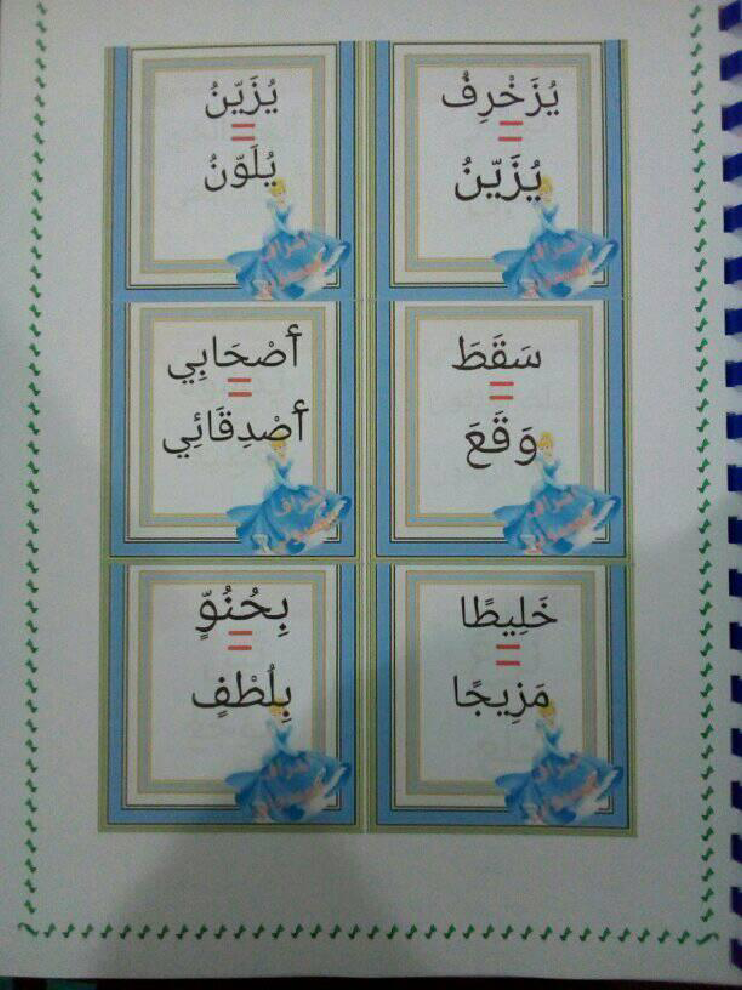 يُزَخْرِفُ
=
يُزَيّنُ
يُزَيّنُ
=
يُلَوّنُ
سَقَطَ
=
وَقَعَ
أَصْحَابِي
=
أَصْدِقَائِي
خَلِيطًا
=
مَزِيجًا
بِحُنُوٍّ
=
بِلُطْفٍ